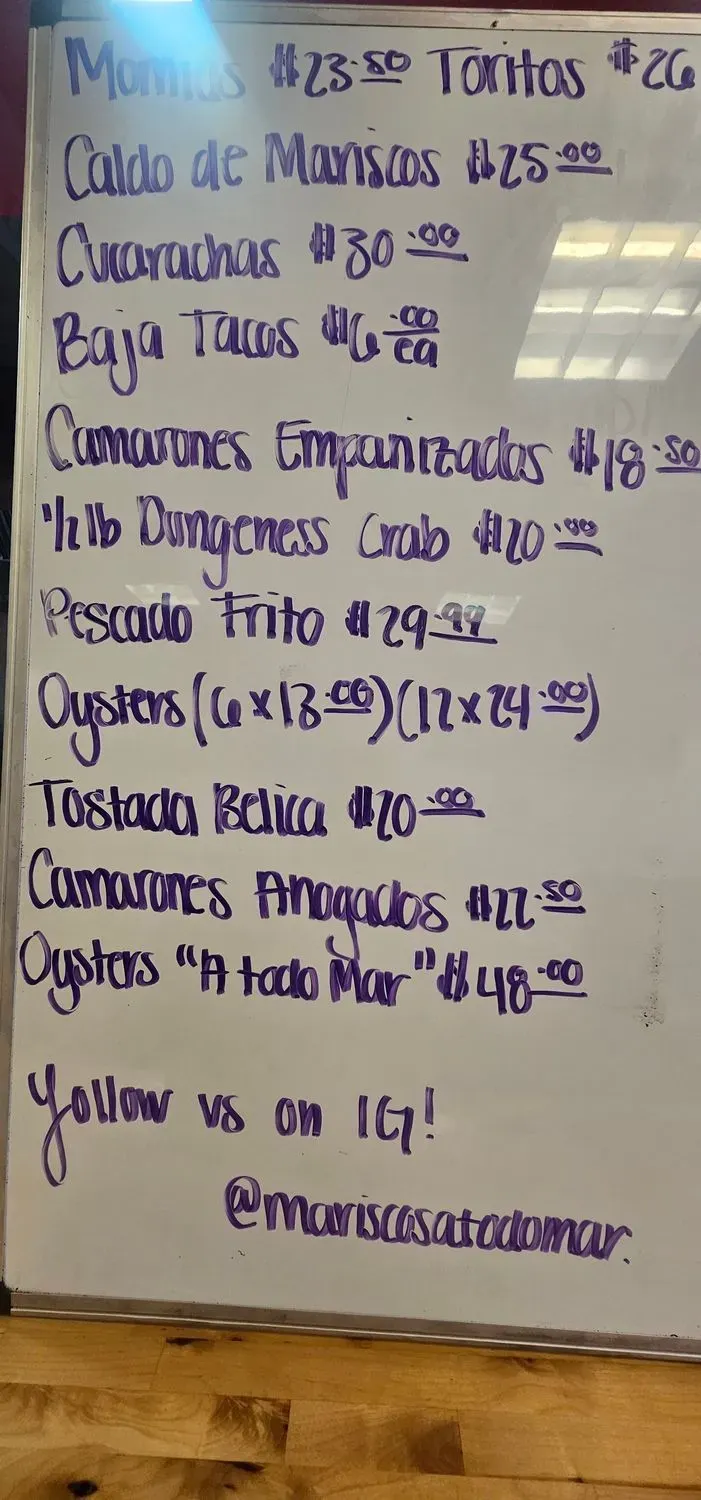 Momias $23.50 Toritos $26
Caldo de Mariscos $25.00
Cucarachas $30.00
Baja Tacos $6.00 ea
Camarones Empanizados $18.50
1/2 lb Dungeness Crab $20.00
Pescado Frito $29.99
Oysters (6 x 13.00) (12 x 24.00)
Tostada Belica $20.00
Camarones Ahogados $22.50
Oysters "A todo Mar" $48.00
Follow us on IG!
@mariscosatodomar.